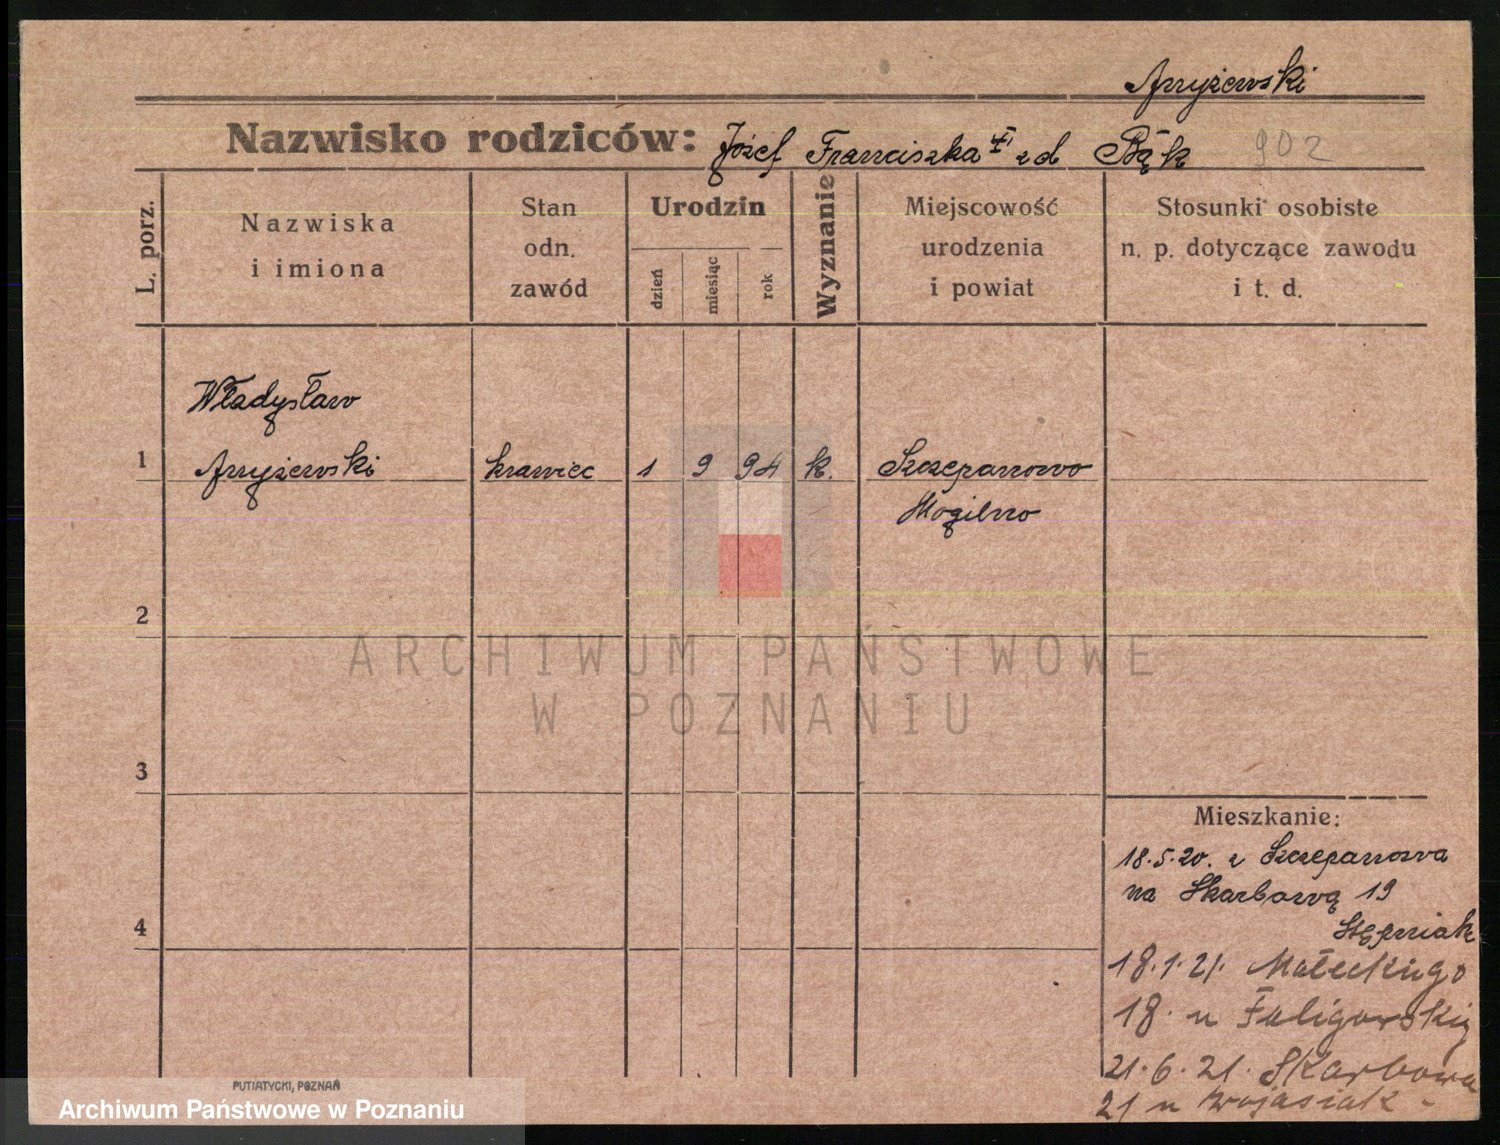 Nazwisko rodziców: Józef Franciszka zd Bąk 902
L. porz.
Nazwiska
i imiona
Stan
odn.
zawód
Urodzin
dzień
miesiąc
rok
Wyznanie
Miejscowość
urodzenia
i powiat
Stosunki osobiste
n. p. dotyczące zawodu
i t. d.
Władysław
1 krawiec 1 9 94 k. Szczepanowo
Mogilno
2
ARCHIWUM PAŃSTWOWE
W POZNANIU
3
Mieszkanie:
18.5.20. z Szczepanowa
na Skarbową 19
Stępniak
4
18.1.21. Małeckiego
18. u Faligowskiej
21.6.21. Skarbowa
21 u
PUTIATYCKI, POZNAŃ
Archiwum Państwowe w Poznaniu